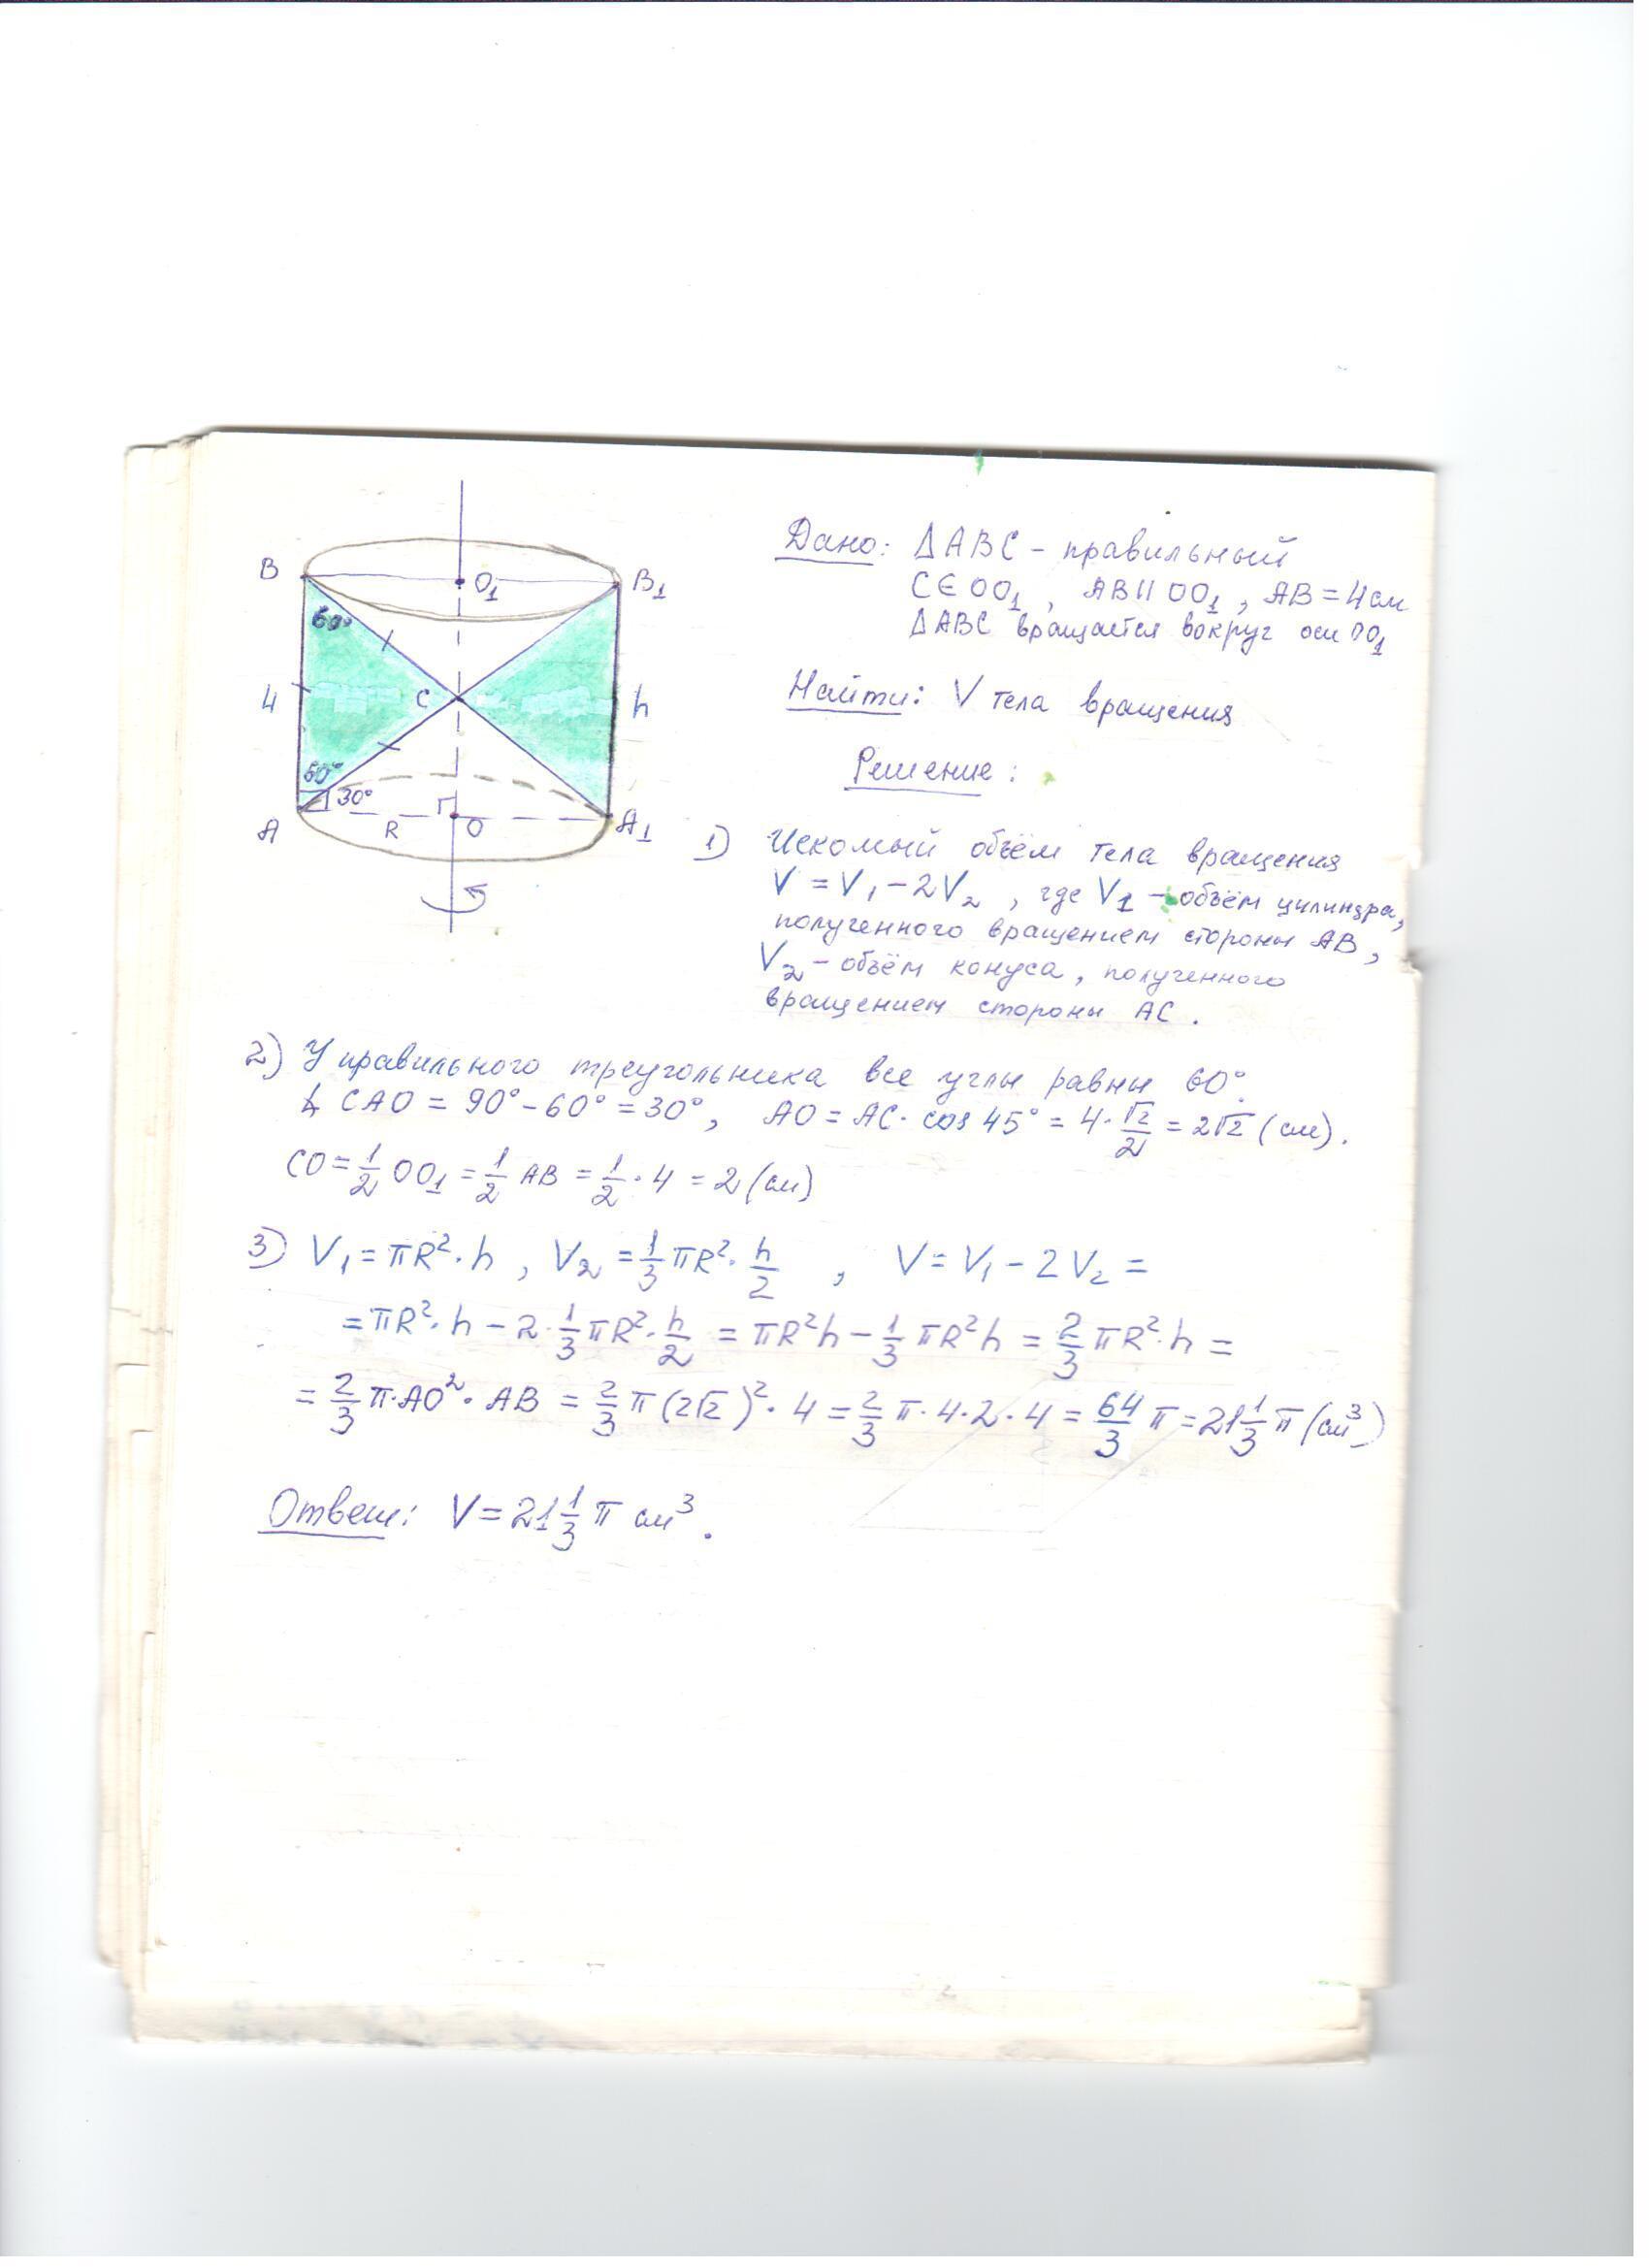 B
O₁
B₁
60°
4
C
h
60°
30°
A
R
O
A₁
Дано: ΔABC - правильный
C ∈ OO₁, AB || OO₁, AB = 4 см
ΔABC вращается вокруг оси OO₁
Найти: V тела вращения
Решение:
1) Искомый объём тела вращения
V = V₁ - 2V₂, где V₁ - объём цилиндра,
полученного вращением стороны AB,
V₂ - объём конуса, полученного
вращением стороны AC.
2) У правильного треугольника все углы равны 60°.
∡ CAO = 90° - 60° = 30°, AO = AC · cos 45° = 4 · √2/2 = 2√2 (см).
CO = 1/2 OO₁ = 1/2 AB = 1/2 · 4 = 2 (см)
3) V₁ = πR² · h, V₂ = 1/3 πR² · h/2, V = V₁ - 2V₂ =
= πR² · h - 2 · 1/3 πR² · h/2 = πR²h - 1/3 πR²h = 2/3 πR² · h =
= 2/3 π · AO² · AB = 2/3 π (2√2)² · 4 = 2/3 π · 4 · 2 · 4 = 64/3 π = 21 1/3 π (см³)
Ответ: V = 21 1/3 π см³.